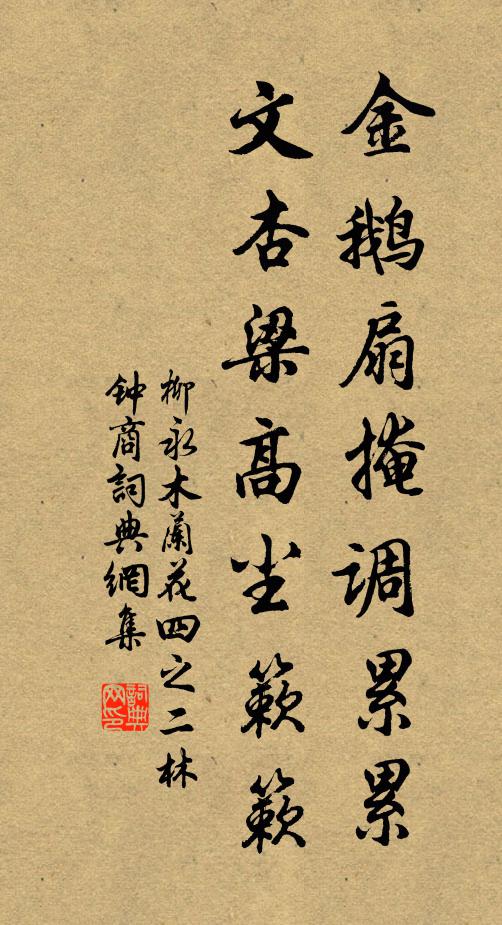 金鵝扇掩调累累
文杏梁高尘簌簌
柳永木蘭花四之二林
钟商詞典網集
詞典网印